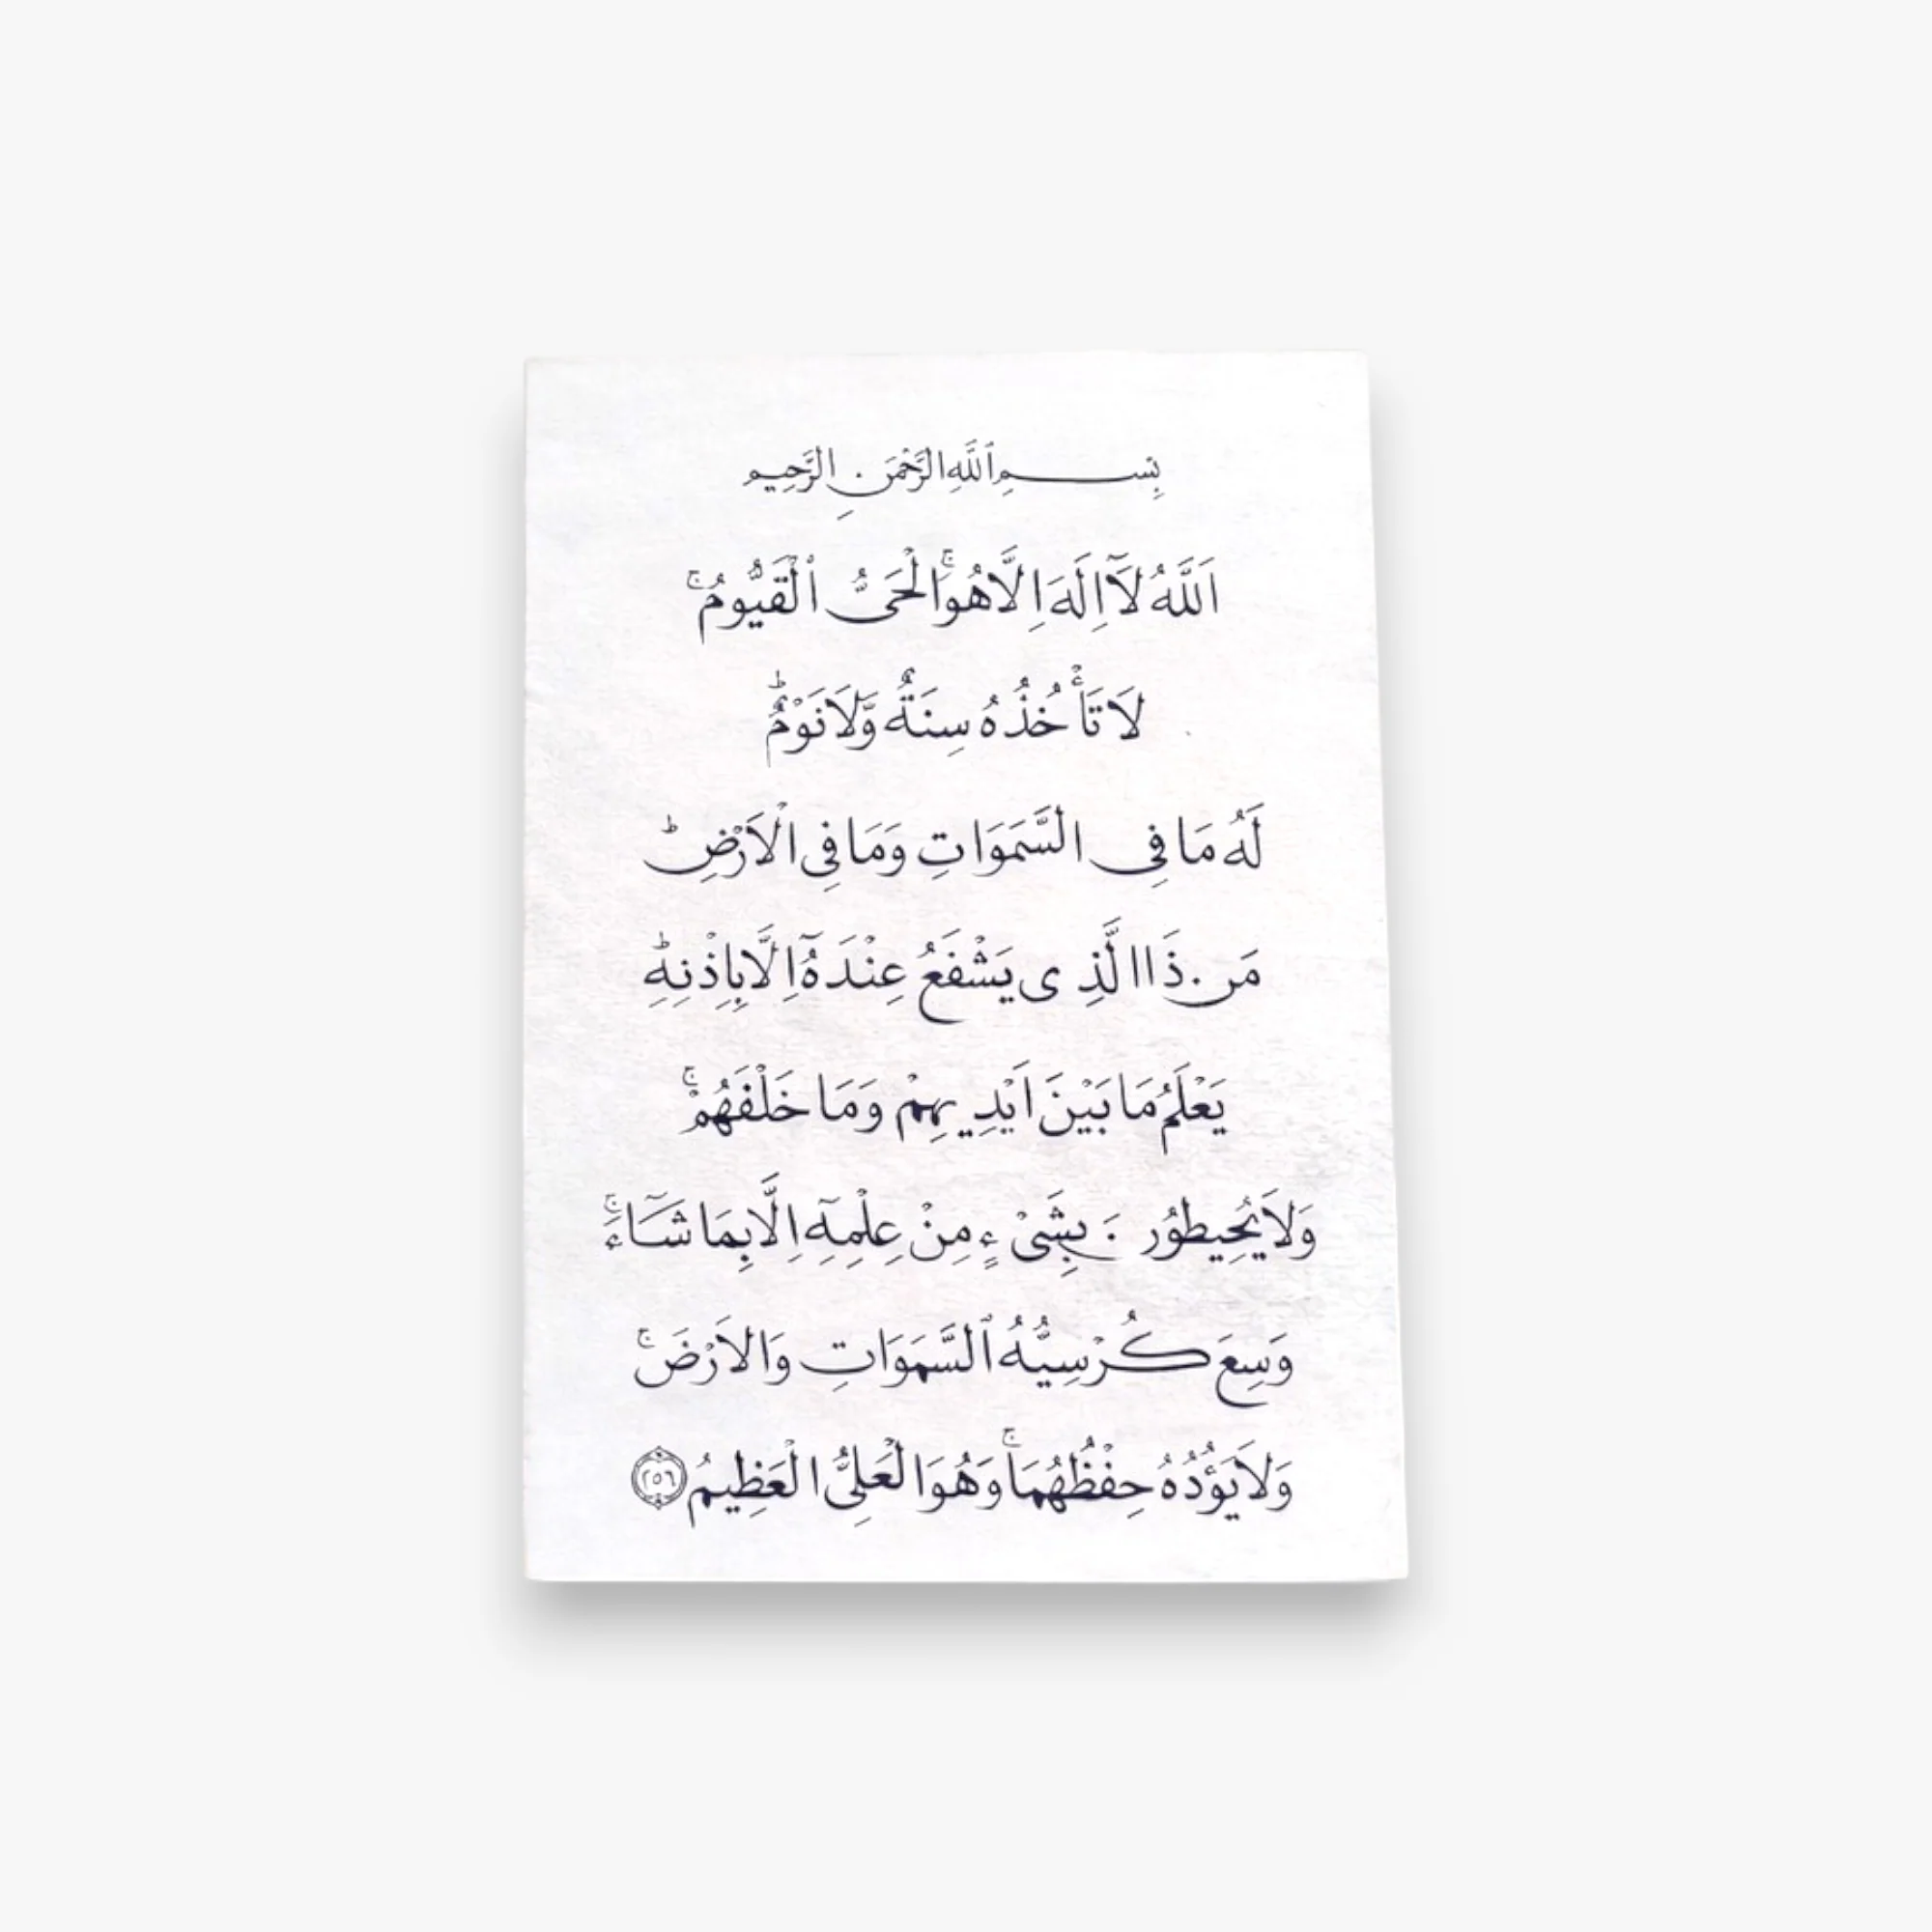 بِسْمِ ٱللَّهِ الرَّحْمَنِ الرَّحِيمِ
اَللَّهُ لَآ اِلَهَ اِلَّا هُوَۚ اَلْحَىُّ ٱلْقَيُّومُۚ
لَا تَأْخُذُهُ سِنَةٌ وَّلَا نَوْمٌؕ
لَهُ مَا فِى السَّمَوَاتِ وَمَا فِى الْاَرْضِؕ
مَن ذَا الَّذِى يَشْفَعُ عِنْدَهُٓ اِلَّا بِاِذْنِهِؕ
يَعْلَمُ مَا بَيْنَ اَيْدِيهِمْ وَمَا خَلْفَهُمْۚ
وَلَا يُحِيطُونَ بِشَىْءٍ مِنْ عِلْمِهِٓ اِلَّا بِمَا شَآءَۚ
وَسِعَ كُرْسِيُّهُ ٱلسَّمَوَاتِ وَالْاَرْضَۚ
وَلَا يَؤُدُهُ حِفْظُهُمَاۚ وَهُوَ الْعَلِىُّ الْعَظِيمُ ٢٥٦